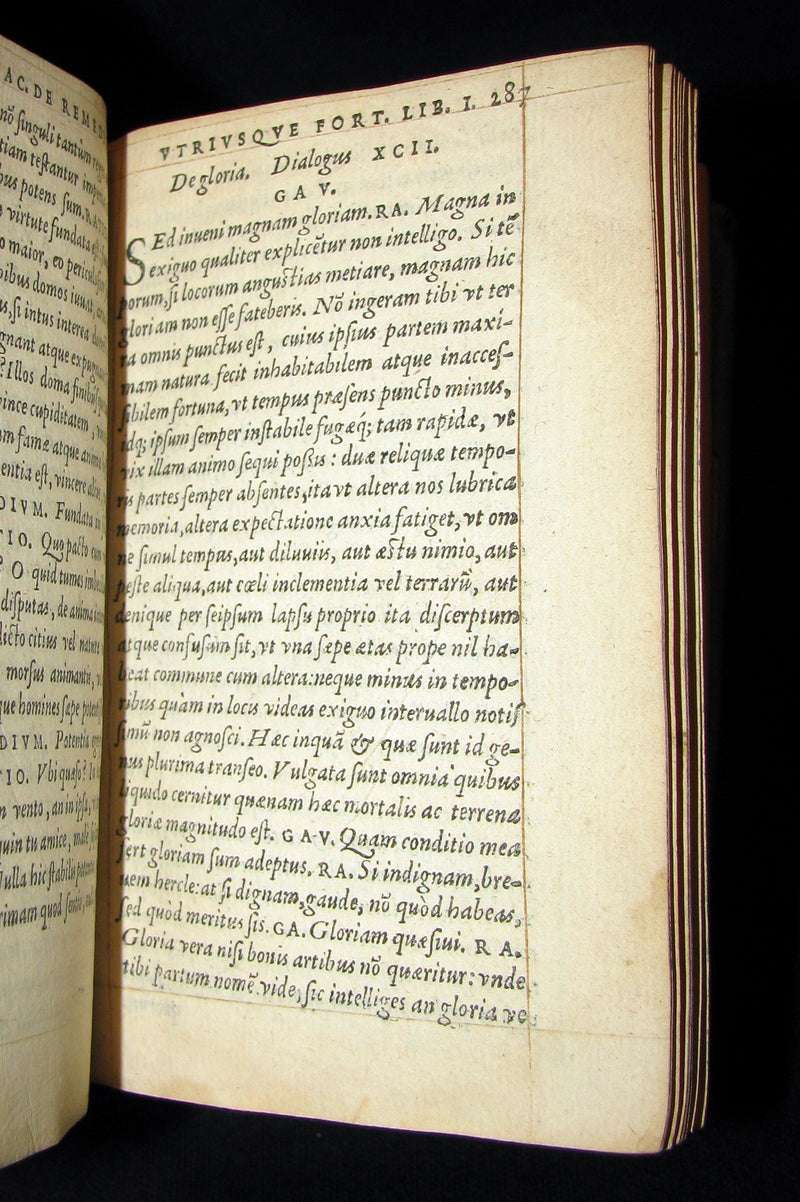 AC. DE REMED
nō singuli tantum
tiam testantur
bus potens sum. RATIO
virtute fundata
o maior, eo
ibus domos
s, si intus interea
gnant atque
? Illos doma
ince cupiditatem
m famæ atque
entia est, vincere
DIVM. Fundata
IO. Quo pacto
? O quid tumes
disputas, de
dicto citius vel
morsus animantis,
que homines sæpe
DIVM. Potentia
TIO. Vbi quæso?
vento, an in ipsa,
uin tu amice,
ulla hic stabilis
rimam quod
VTRIVSQVE FORT. LIB. I. 287
De gloria. Dialogus XCII.
GAV.
SEd inueni magnam gloriam. RA. Magna in
exiguo qualiter explicētur non intelligo. Si tē
porum, si locorum angustias metiare, magnam hic
gloriam non esse fateberis. Nō ingeram tibi vt ter
ra omnis punctus est, cuius ipsius partem maxi-
mam natura fecit inhabitabilem atque inacces-
sibilem fortuna, vt tempus præsens puncto minus,
idq; ipsum semper instabile fugæq; tam rapidæ, vt
vix illam animo sequi possis: duæ reliquæ tempo-
ris partes semper absentes, ita vt altera nos lubrica
memoria, altera expectatione anxia fatiget, vt om
ne simul tempus, aut diluuiis, aut æstu nimio, aut
peste aliqua, aut cœli inclementia vel terrarū, aut
denique per seipsum lapsu proprio ita discerptum
atque confusum sit, vt vna sæpe ætas prope nil ha-
beat commune cum altera: neque minus in tempo-
ribus quàm in locis videas exiguo interuallo notis
simū non agnosci. Hæc inquā & quæ sunt id ge-
nus plurima transeo. Vulgata sunt omnia quibus
liquido cernitur quænam hæc mortalis ac terrena
gloriæ magnitudo est. GAV. Quam conditio mea
fert gloriam sum adeptus. RA. Si indignam, bre-
uem hercle: at si dignam, gaude, nō quòd habeas,
sed quòd meritus sis. GA. Gloriam quæsiui. RA.
Gloria vera nisi bonis artibus nō quæritur: vnde
tibi partum nomē vide, sic intelliges an gloria ve